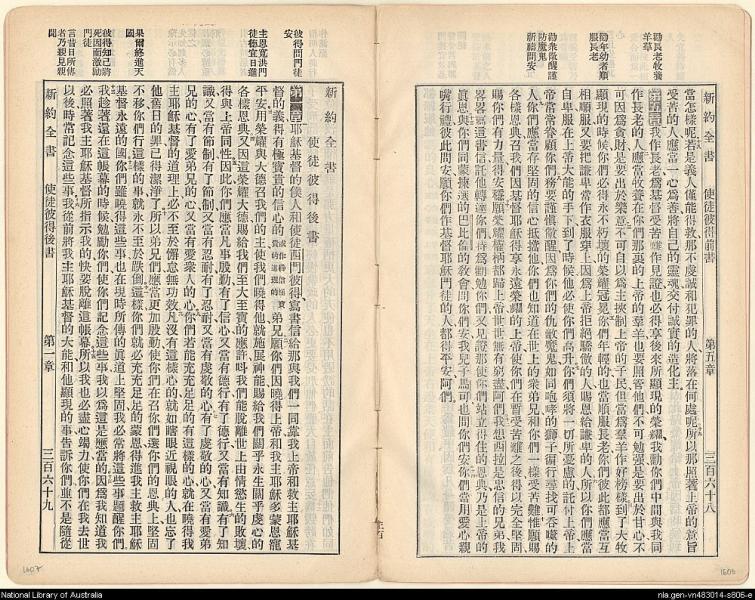 勸長老牧養
羊羣
勸年幼者順
服長老
勸衆儆醒謹
防魔鬼
祈禱問安
新約全書 使徒彼得前書 第五章 三百六十八
當怎樣呢若是義人僅能得救那不虔誠和犯罪的人將落在何處呢所以那照著上帝的意旨
受苦的人應當一心爲善將自己的靈魂交付誠實的造化主
第五章我作長老爲基督受苦難作見證也必得享後來所顯現的榮耀我勸你們中間與我同
作長老的人應當牧養在你們那裏的上帝的羣羊也要照管他們不可勉强是要出於甘心不
可因爲貪財是要出於樂意不可自以爲主挾制上帝的子民但當爲羣羊作好榜樣到了大牧
顯現的時候你們必得永不朽壞的榮耀冠冕你們年輕的也當順服長老你們彼此都應當互
相順服又要把謙卑當作衣服穿上因爲上帝拒絕驕傲的人賜恩給謙卑的人所以你們應當
自卑服在上帝大能的手下到了時候他必使你們高升你們須將一切所憂慮的託付上帝上
帝常常眷顧你們務要謹愼儆醒因爲你們的仇敵魔鬼如同咆哮的獅子徧行尋找可吞嚥的
人你們應當存堅固的信心抵擋他你們也知道在世上的衆弟兄和你們一樣受苦難惟願賜
各樣恩典召我們因基督耶穌得享永遠榮耀的上帝等你們在暫受苦難之後得以完全堅固
賜你們有力量得安穩願榮耀權柄都歸上帝世世無有窮盡阿們我想西拉是忠信的兄弟我
畧畧寫這書信託他轉達你們特爲勸勉你們又見證那使你們站立得住的恩典乃是上帝的
眞恩與你們同蒙揀選的巴比倫的教會問你們安我兒子馬可也問你們安你們當用愛心親
嘴行禮彼此問安願你們作基督耶穌門徒的人都得平安阿們
彼得問門徒
安
主恩寬洪門
徒德宜日進
果爾終進天
國
彼得知己將
死因而激勵
門徒
言昔日所傳
者乃親見親
聞
新約全書
使徒彼得後書
第一章耶穌基督的僕人和使徒西門彼得寫書信給那與我們一同靠我上帝和救主耶穌基
督的義得有極寶貴的信心的弟兄願你們因曉得上帝和我主耶穌多蒙恩寵
平安用榮耀與大德召我們的主使我們曉得他就施展神能賜給我們關乎永生關乎虔心的
各樣恩典又因這榮耀大德賜給我們至大至寶的應許呌我們能脫離世上由情慾生的敗壞
得與上帝同性因此你們應當凡事殷勤有了信心又當有德行有了德行又當有知識有了知
識又當有節制有了節制又當有忍耐有了忍耐又當有虔敬的心有了虔敬的心又當有愛弟
兄的心有了愛弟兄的心又當有愛衆人的心你們若能充充足足的有這樣的心就在曉得我
主耶穌基督的道理上必不至於懈怠無功效凡沒有這樣心的就如瞎眼近視眼的人也忘了
他舊日的罪已得潔淨了所以弟兄們應當更加殷勤使你們在召你們選你們的恩典上堅固
不移你們行這樣的事就永不至於跌倒這樣你們就必充充足足的蒙恩得進我主救主耶穌
基督永遠的國你們雖曉得這些事也在現時所傳的眞道上堅固我必常將這些事題醒你們
我趁著還在這帳幕的時候勉勵你們使你們記念這些事我以爲這是應當的因爲我知道我
必照著我主耶穌基督所指示我的快要脫離這帳幕所以我也必盡心竭力使你們在我去世
以後時常記念這些事我從前將我主耶穌基督的大能和他顯現的事告訴你們並不是隨從
新約全書 使徒彼得後書 第一章 三百六十九
1607
1606
National Library of Australia
nla.gen-vn483014-s806-e